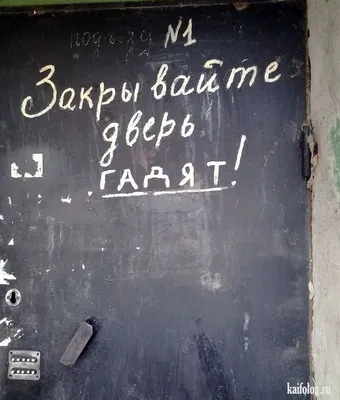 подъезд N1
Закрывайте
дверь
ГАДЯТ!
kaifolog.ru